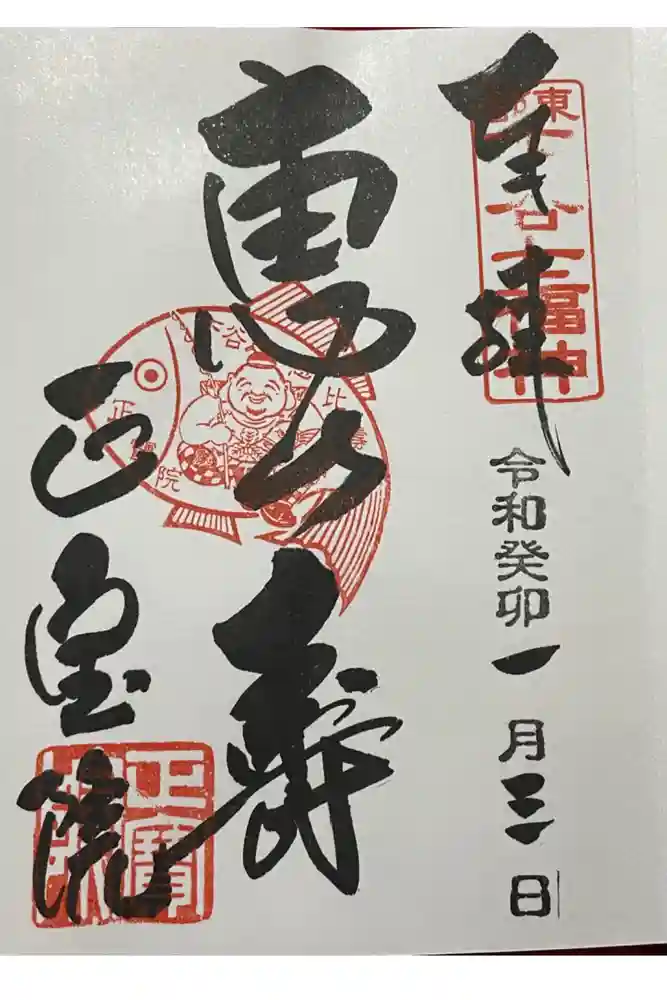 奉拝
東都下谷七福神
令和癸卯一月三日
恵比寿
下谷 恵比寿
正寶院
正宝院
正寶院